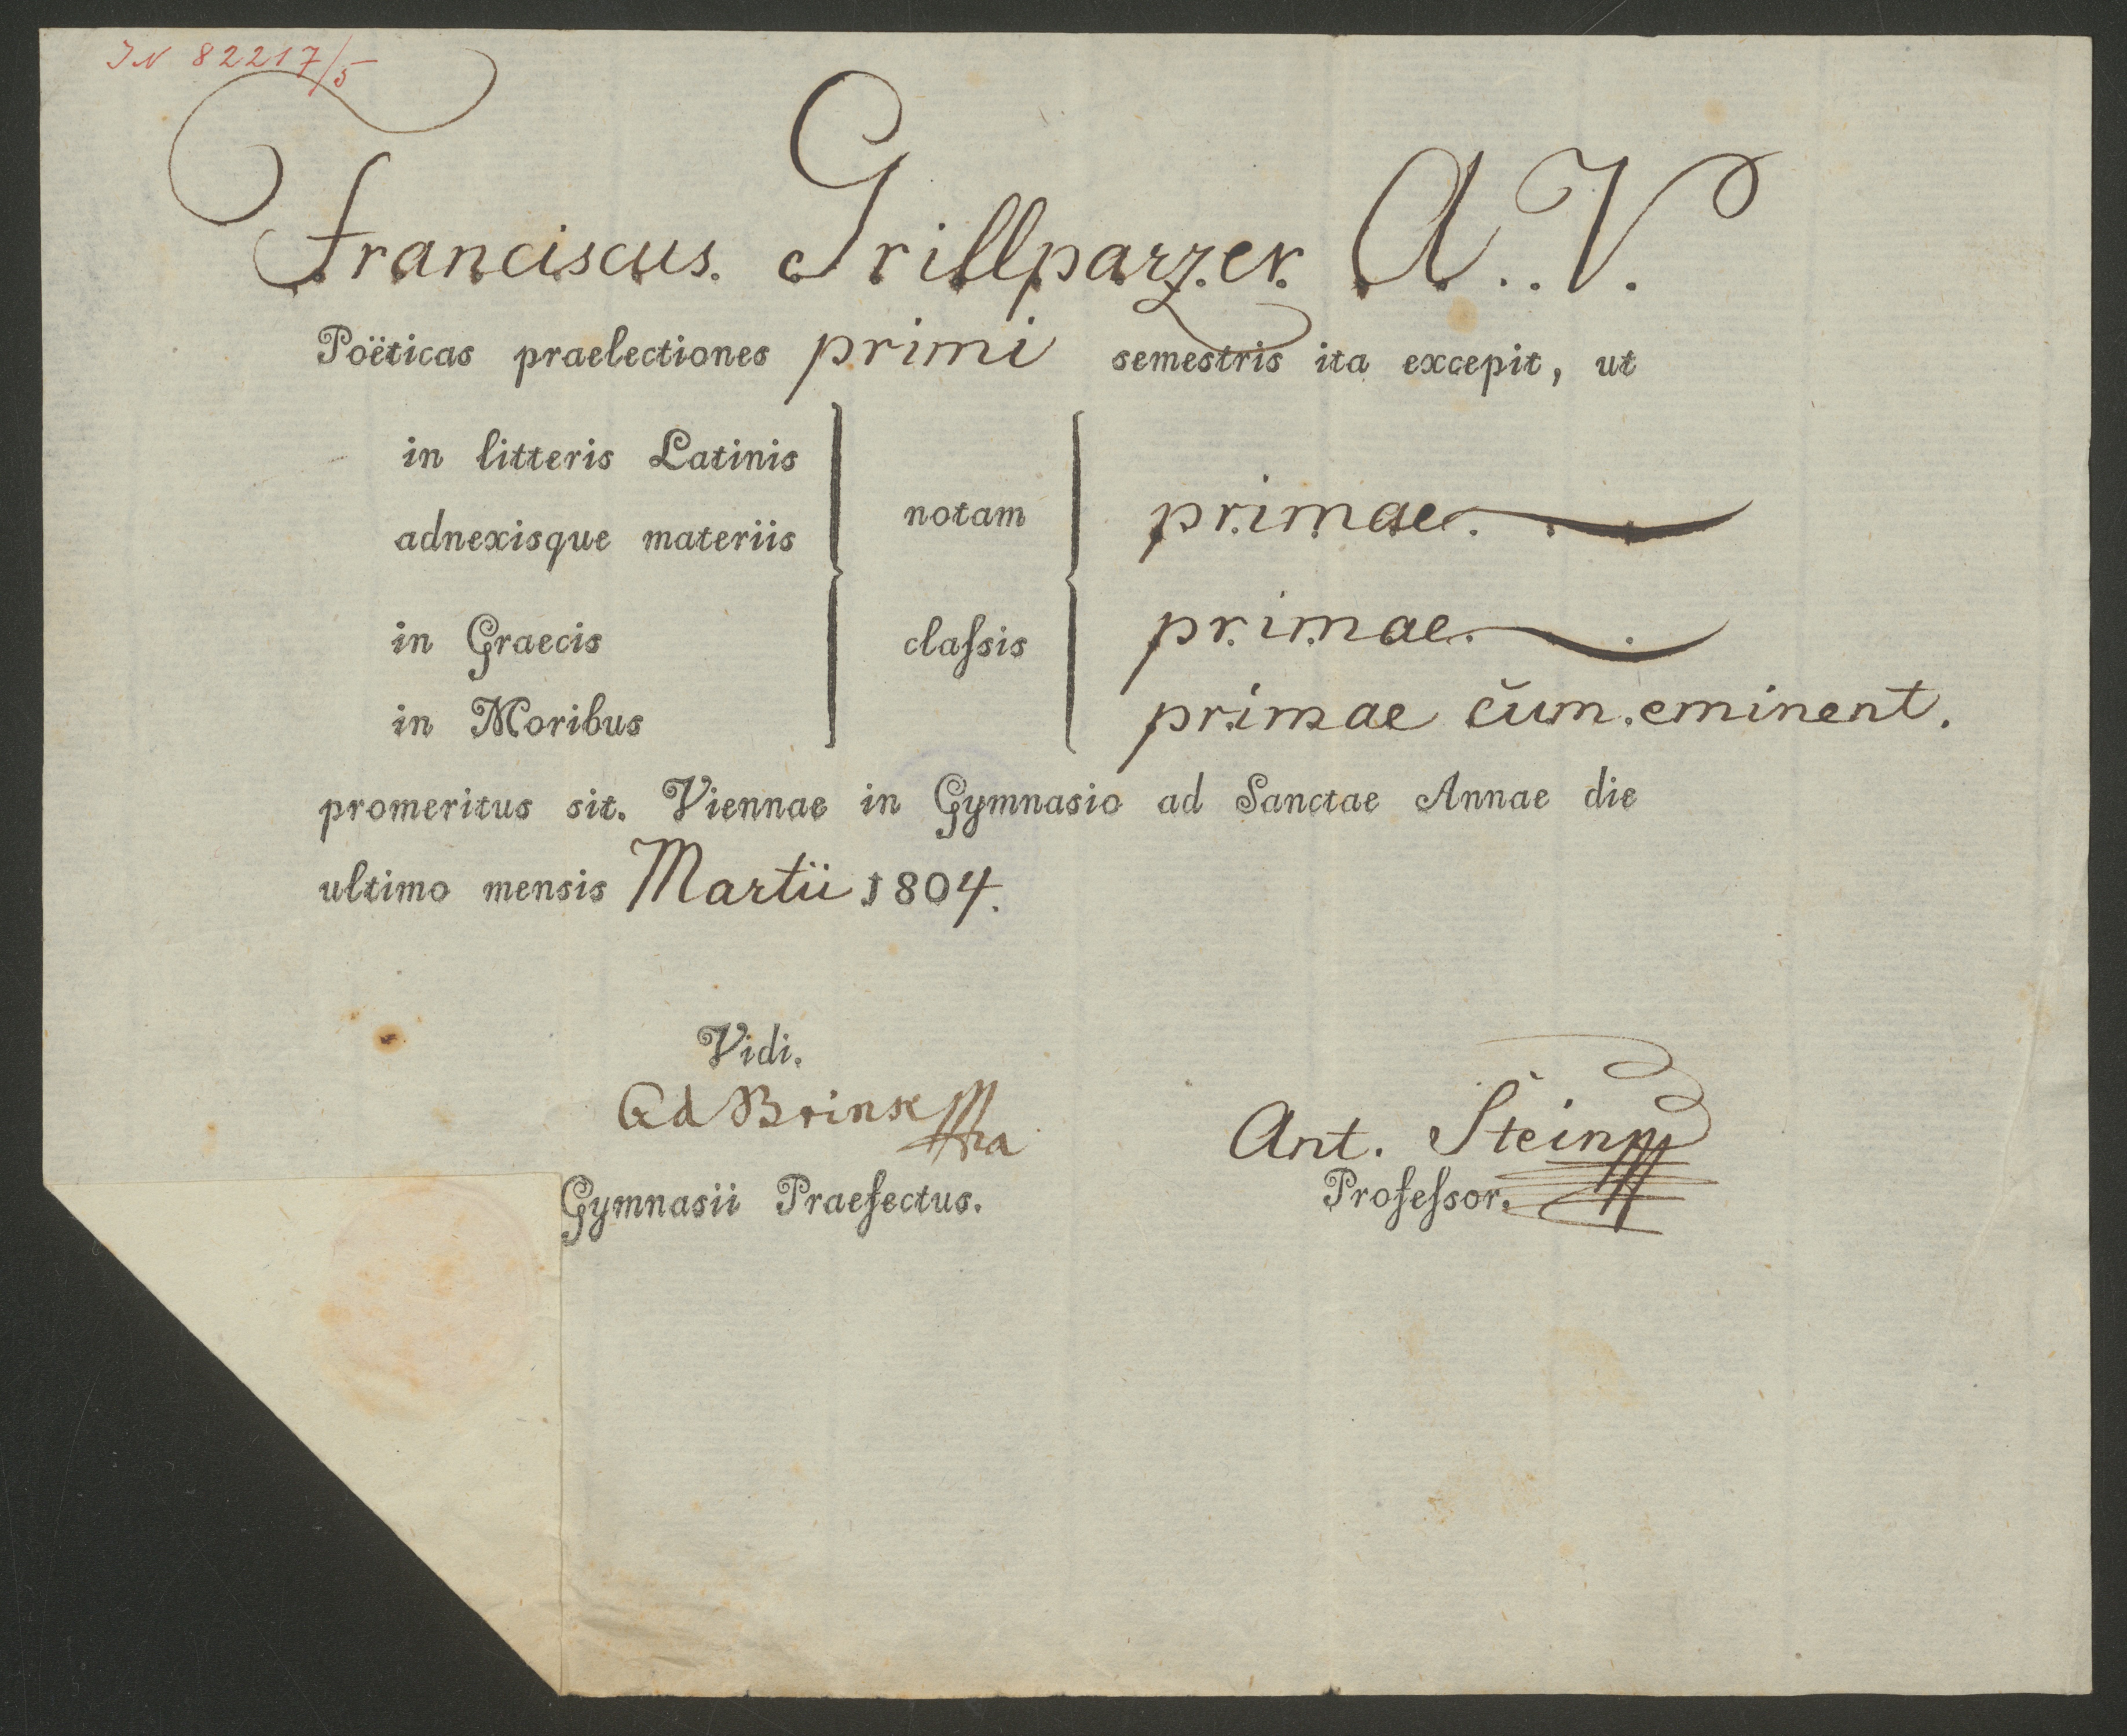 IN 82217/5
Franciscus. Grillparzer. A..V.
Poëticas praelectiones primi semestris ita excepit, ut
in litteris Latinis
adnexisque materiis
notam
primae.
in Graecis
claſsis
primae.
in Moribus
primae cŭm eminent.
promeritus sit. Viennae in Gymnasio ad Sanctae Annae die
ultimo mensis Martii 1804.
Vidi.
Ad Brinsk
Ant. Stein
Gymnasii Praefectus.
Profeſsor.